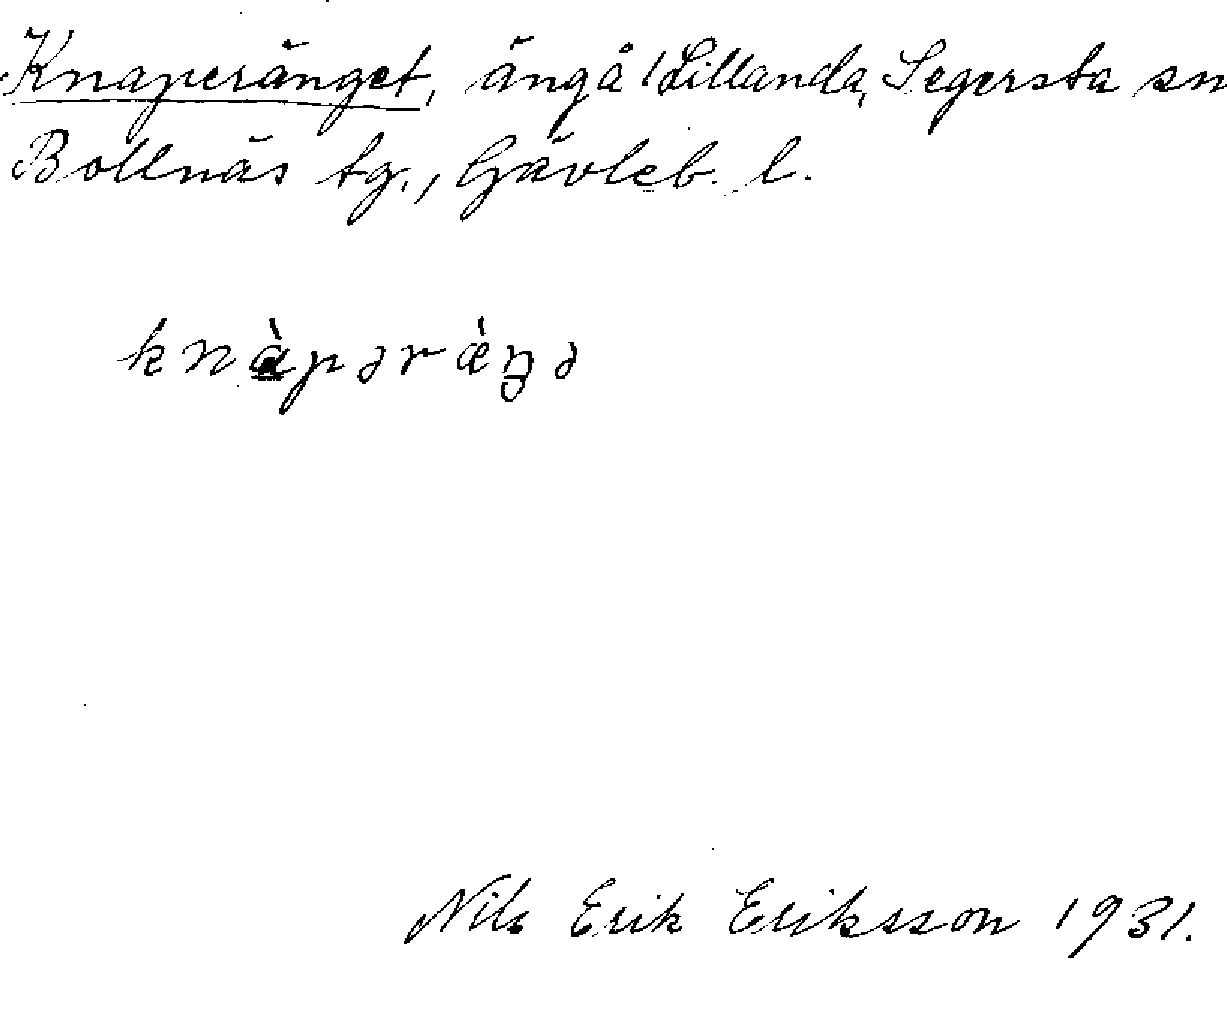 Knaperänget, äng å Lillanda, Segersta sn
Bollnäs tg., Gävleb. l.
knàpəræ̀ŋə
Nils Erik Eriksson 1931.